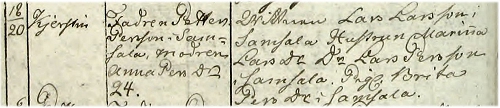 18/20 Kjerstin
Fadren Petter
Person i Sam-
sala, modren
Anna Pers dr
24.
Wittnen Lars Larsson,
Samsala Hustrun Marina
Lars dr Dr Lars Person
i Samsala. Pig. Brita
Pers dr i Samsala.